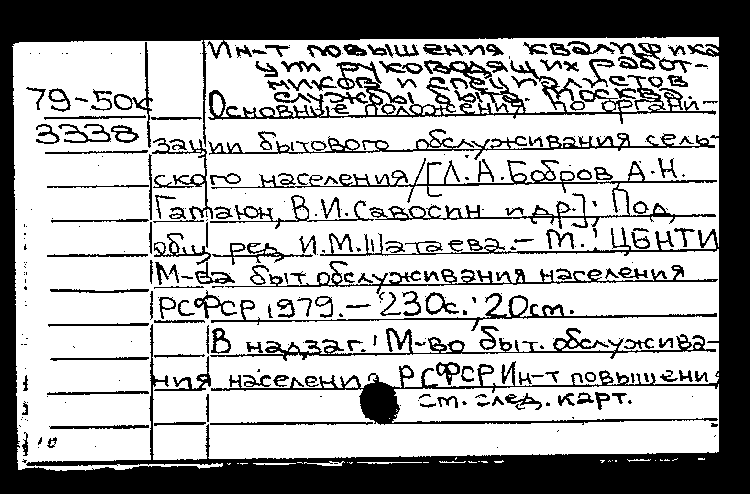 Ин-т повышения квалифика
ции руководящих работ-
ников и специалистов
службы быта. Москва.
79-50к
Основные положения по органи-
3338
зации бытового обслуживания сель-
ского населения/[Л.А.Бобров, А.Н.
Гатаюн, В.И.Савосин и др.]; Под
общ. ред. И.М.Шатаева.- М.: ЦБНТИ
М-ва быт.обслуживания населения
РСФСР, 1979.- 230с.; 20см.
В надзаг.: М-во быт. обслужива-
ния населения РСФСР, Ин-т повышени
см. след. карт.
10